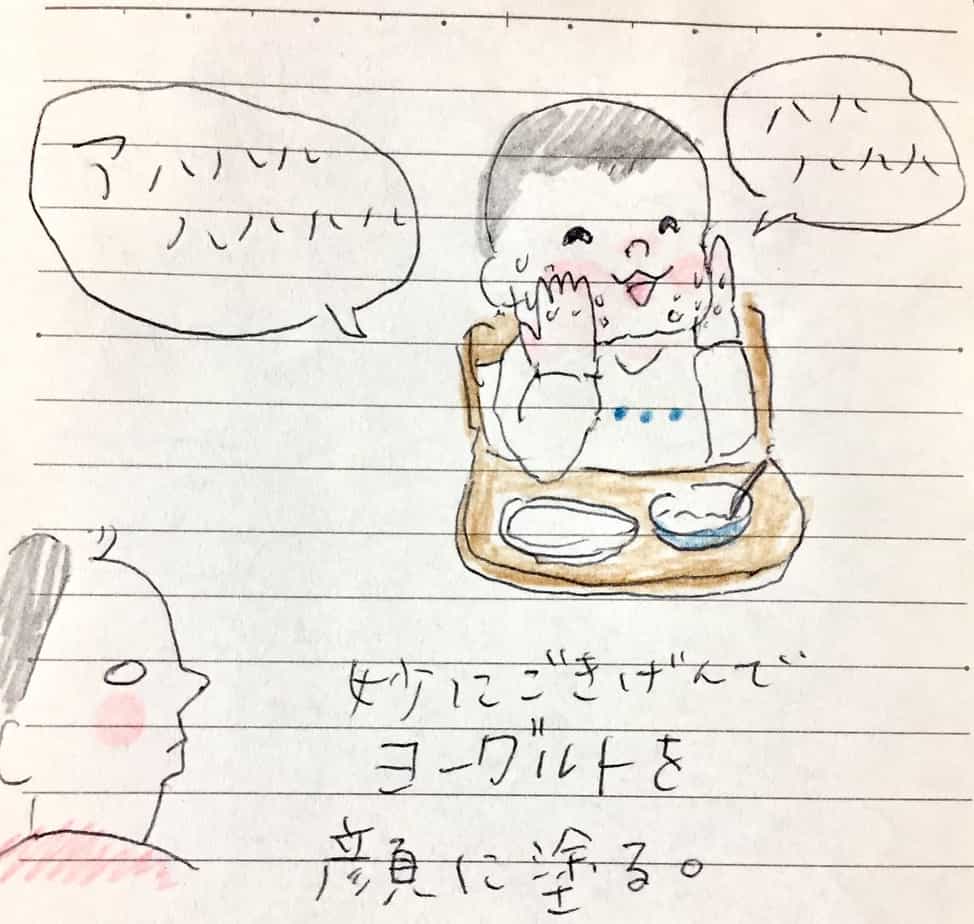 アハハハ
ハハハハ
ハハ
ハハハ
妙にごきげんで
ヨーグルトを
顔に塗る。